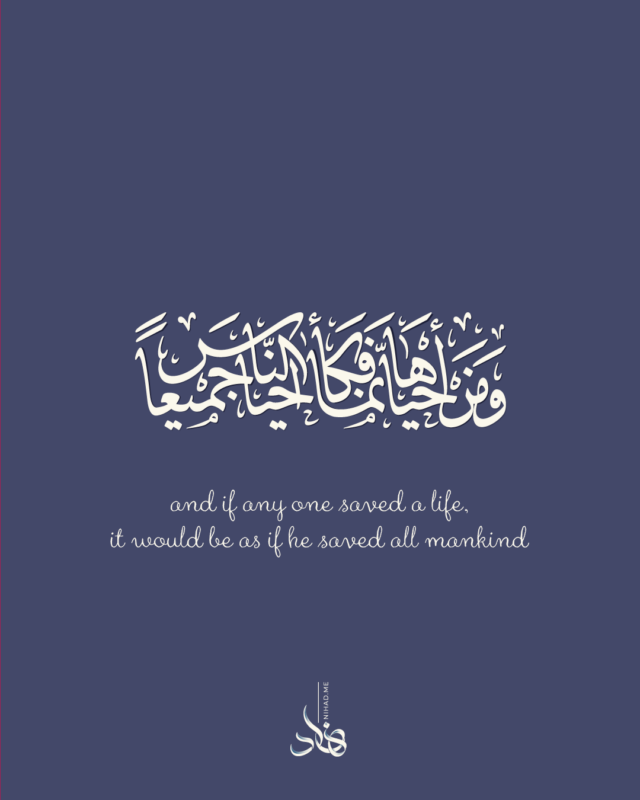 وَمَنْ أَحْيَاهَا فَكَأَنَّمَا أَحْيَا النَّاسَ جَمِيعاً
and if any one saved a life,
it would be as if he saved all mankind
NIHAD.ME
نهاد